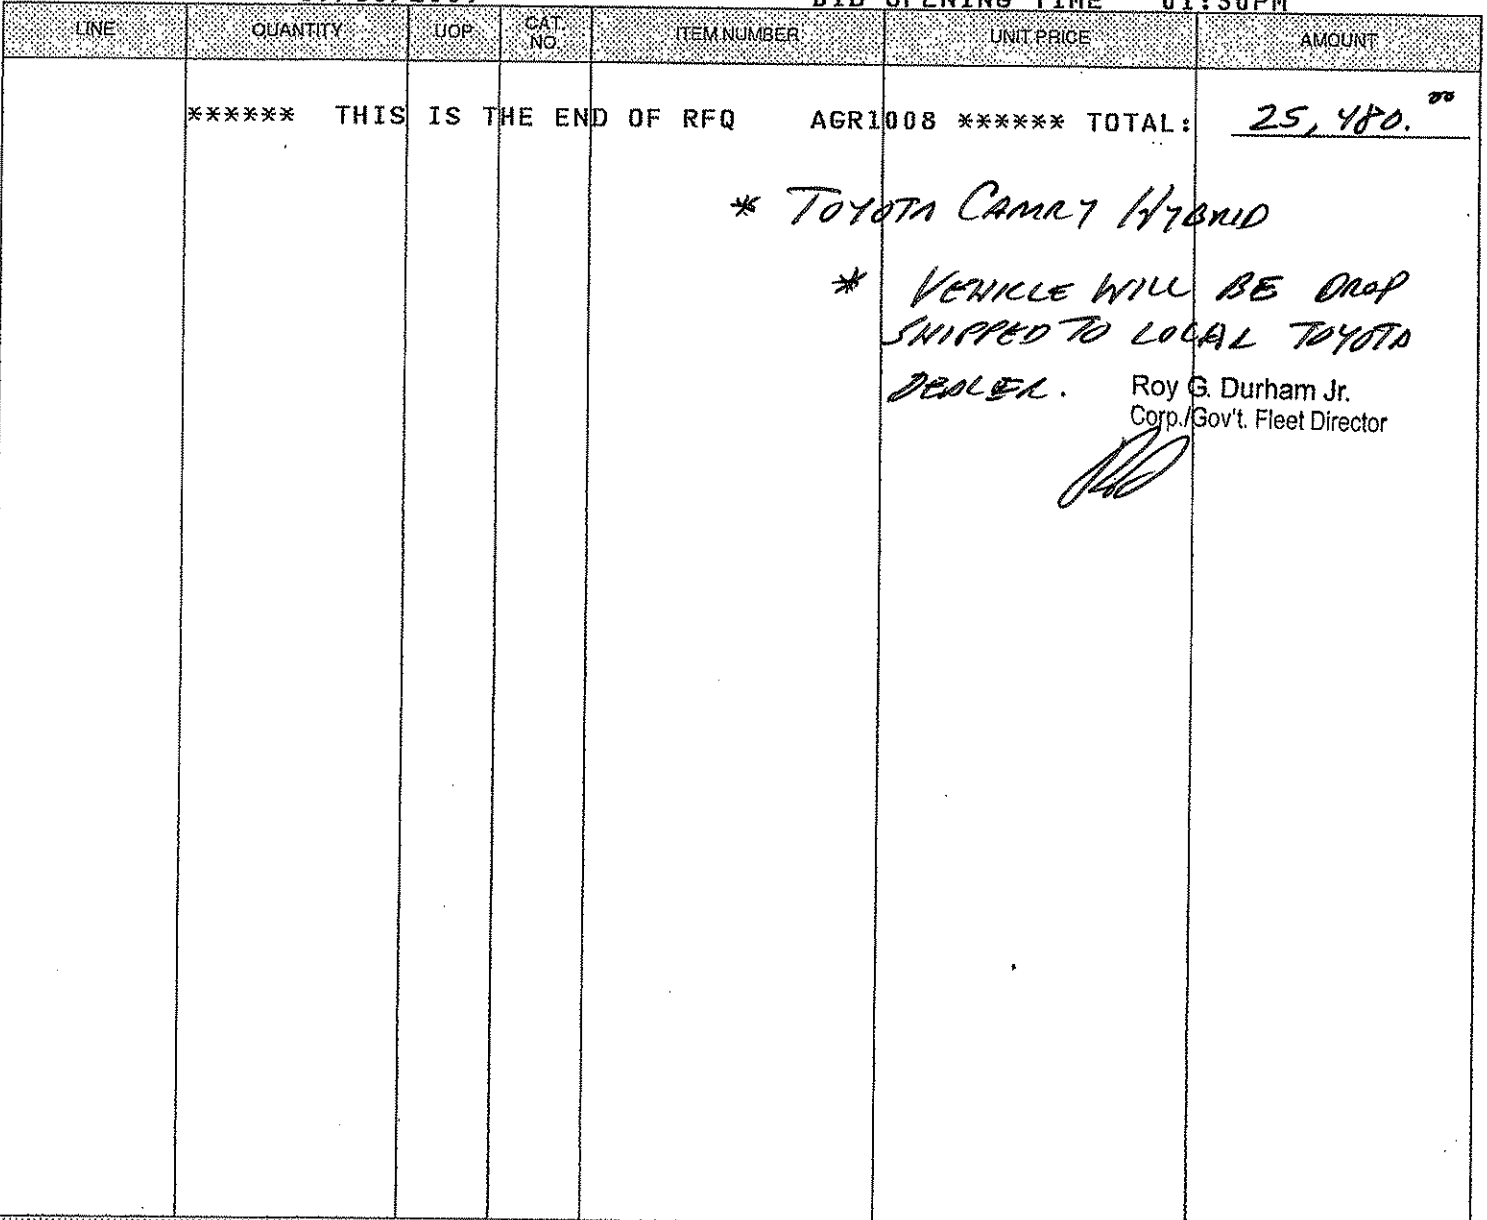 BID OPENING TIME 01:30PM
LINE QUANTITY UOP CAT. NO. ITEM NUMBER UNIT PRICE AMOUNT
****** THIS IS THE END OF RFQ AGR1008 ****** TOTAL: 25,480.00
* TOYOTA CAMRY HYBRID
* VEHICLE WILL BE DROP
SHIPPED TO LOCAL TOYOTA
DEALER.
Roy G. Durham Jr.
Corp./Gov't. Fleet Director